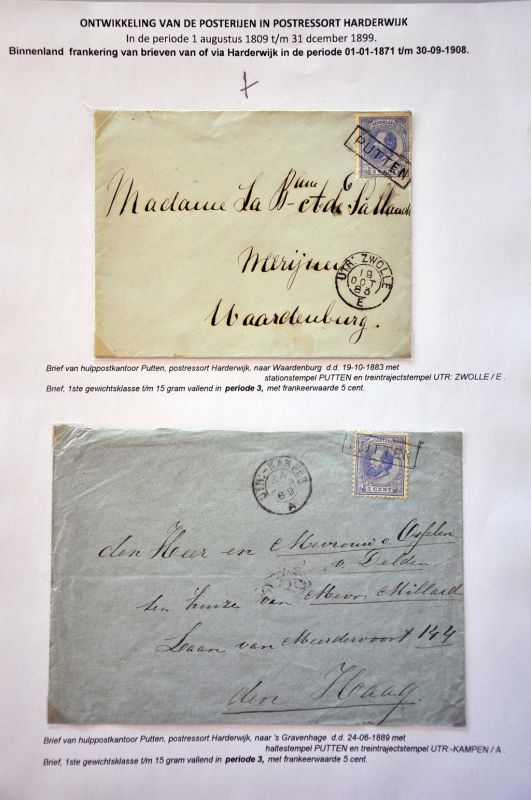 ONTWIKKELING VAN DE POSTERIJEN IN POSTRESSORT HARDERWIJK
In de periode 1 augustus 1809 t/m 31 dcember 1899.
Binnenland frankering van brieven van of via Harderwijk in de periode 01-01-1871 t/m 30-09-1908.
NEDERLAND
PUTTEN
5 CENT
Madame La Bne
Ctde
Waardenburg.
UTR: ZWOLLE
19
OCT
83
E
Brief van hulppostkantoor Putten, postressort Harderwijk, naar Waardenburg d.d. 19-10-1883 met
stationstempel PUTTEN en treintrajectstempel UTR: ZWOLLE / E .
Brief, 1ste gewichtsklasse t/m 15 gram vallend in periode 3, met frankeerwaarde 5 cent.
PUTTEN
5 CENT
UTR:-KAMPEN
A
den Heer en Mevrouw v. Asselen
v. Delden
ten huize van Mevr. Millard
Laan van Meerdervoort 144
den Haag.
Brief van hulppostkantoor Putten, postressort Harderwijk, naar 's Gravenhage d.d. 24-06-1889 met
haltestempel PUTTEN en treintrajectstempel UTR:-KAMPEN / A .
Brief, 1ste gewichtsklasse t/m 15 gram vallend in periode 3, met frankeerwaarde 5 cent.